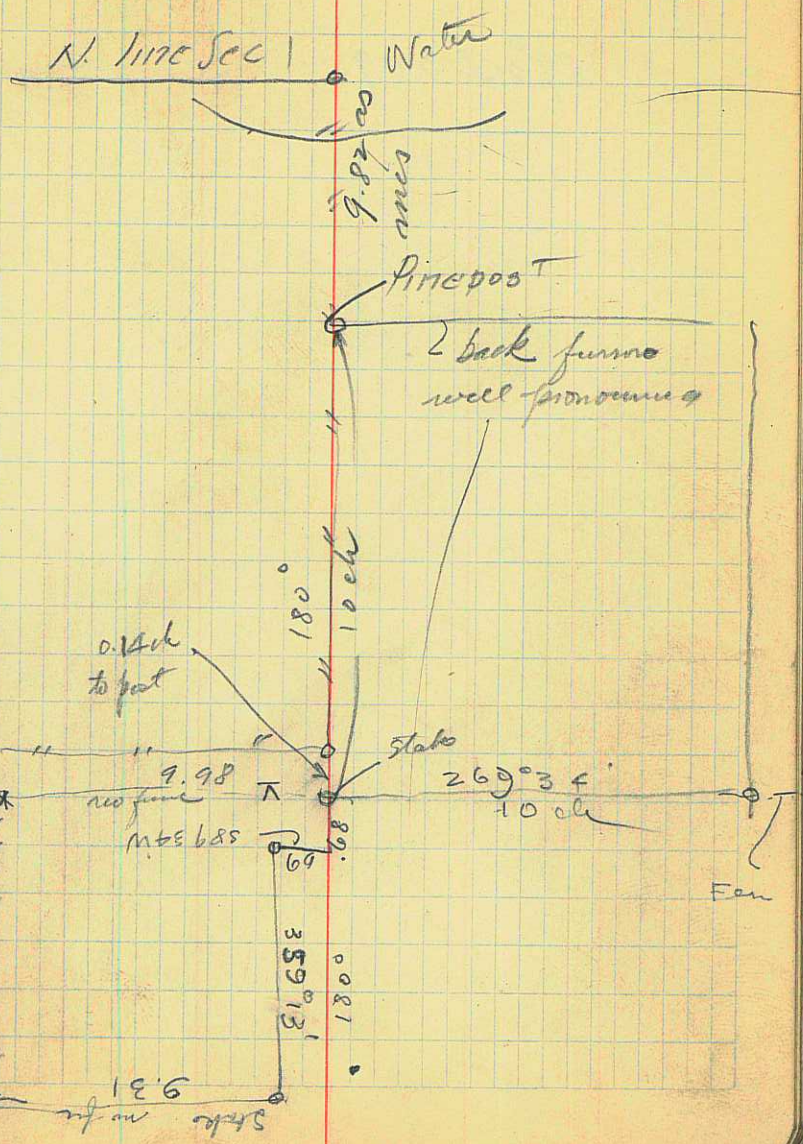 N. line Sec 1
Water
9.82 as
Pine post
back furrow
well pronounced
180°
10 ch
0.14 ch
to post
Stake
9.98
no fence
269°34'
10 ch
S89°34'W
69
.68
Fen
359°13'
180°
9.31
Stake no fe